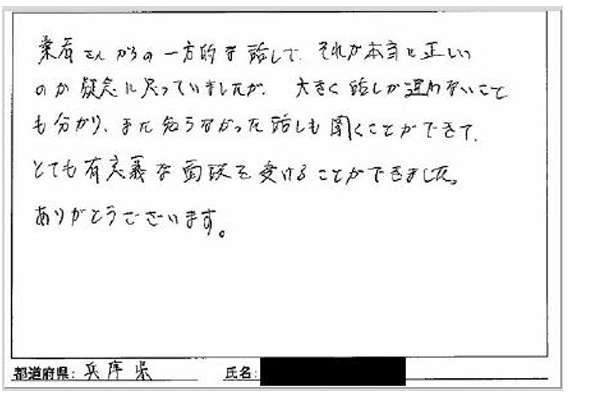 業者さんからの一方的な話しで、それが本当に正しい
のか疑念に思っていましたが、大きく話しが違わないこと
も分かり、また知らなかった話しも聞くことができて、
とても有意義な面談を受けることができました。
ありがとうございます。
都道府県: 兵庫県 氏名: